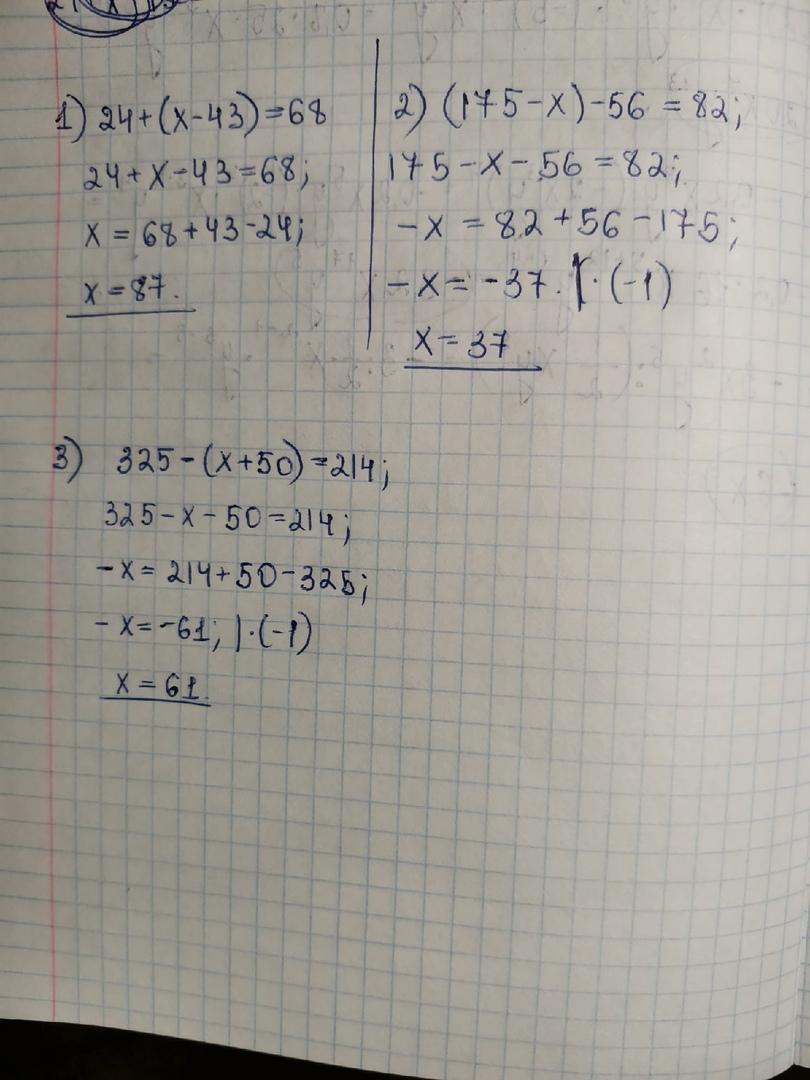 1) 24+(x-43)=68
24+x-43=68;
x=68+43-24;
x=87.
2) (175-x)-56=82;
175-x-56=82;
-x=82+56-175;
-x=-37. |·(-1)
x=37
3) 325-(x+50)=214;
325-x-50=214;
-x=214+50-325;
-x=-61; |·(-1)
x=61.